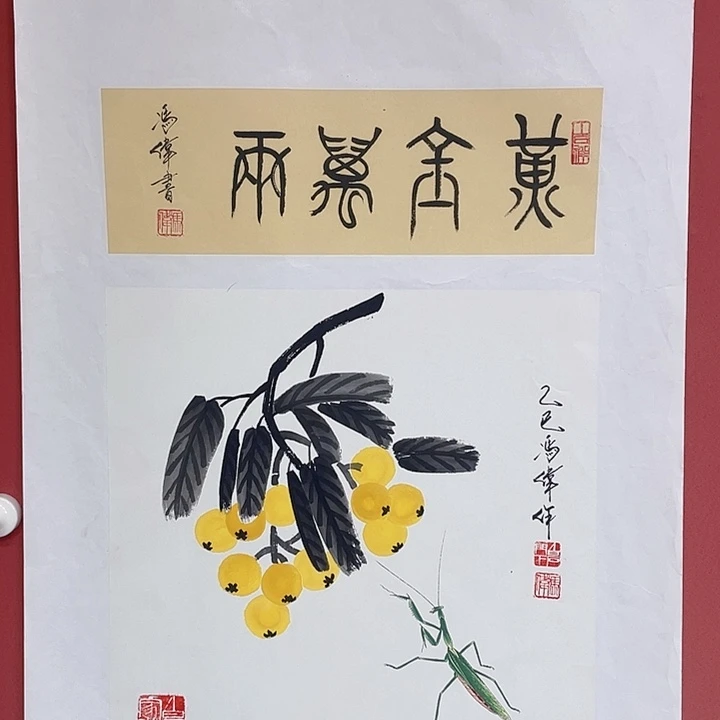 黄金萬兩
馮偉書
乙巳馮偉作